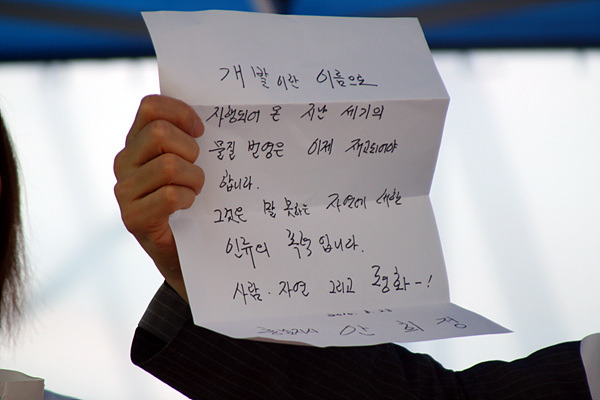 개발이란 이름으로
자행되어 온 지난 세기의
물질 번영은 이제 재고되어야
합니다.
그것은 말 못하는 자연에 대한
인류의 폭력입니다.
사람·자연 그리고 평화-!
안희정